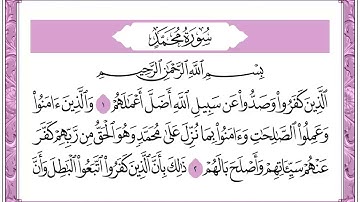 سُورَةُ مُحَمَّدٍ
بِسْمِ اللَّهِ الرَّحْمَٰنِ الرَّحِيمِ
الَّذِينَ كَفَرُوا۟ وَصَدُّوا۟ عَن سَبِيلِ اللَّهِ أَضَلَّ أَعْمَٰلَهُمْ ١ وَالَّذِينَ ءَامَنُوا۟
وَعَمِلُوا۟ الصَّٰلِحَٰتِ وَءَامَنُوا۟ بِمَا نُزِّلَ عَلَىٰ مُحَمَّدٍ وَهُوَ الْحَقُّ مِن رَّبِّهِمْ كَفَّرَ
عَنْهُمْ سَيِّـَٔاتِهِمْ وَأَصْلَحَ بَالَهُمْ ٢ ذَٰلِكَ بِأَنَّ الَّذِينَ كَفَرُوا۟ اتَّبَعُوا۟ الْبَٰطِلَ وَأَنَّ